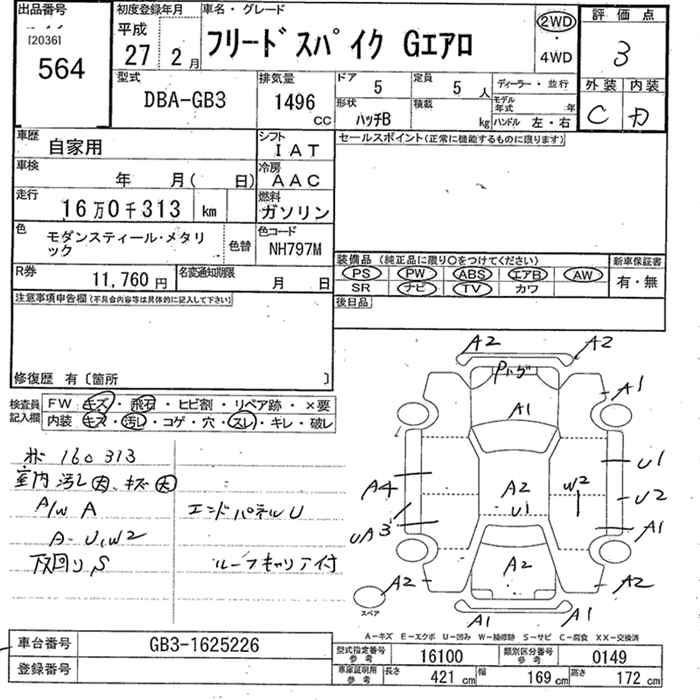 出品番号
120361
564
初度登録年月
平成
27 2 月
車名・グレード
フリードスパイク Gエアロ
2WD
4WD
評価点
3
外装 内装
C D
型式
DBA-GB3
排気量
1496 cc
ドア
5
定員
5 人
形状
ハッチB
積載
kg
ディーラー・並行
モデル年式 年
ハンドル 左・右
車歴
自家用
シフト
IAT
車検
年 月( 日)
冷房
AAC
走行
16万0千313 km
燃料
ガソリン
色
モダンスティール・メタリック
色替
色コード
NH798M
R券
11,760 円
名変通知期限
月 日
セールスポイント(正常に機能するものに限ります)
装備品 (純正品に限り○をつけてください)
PS PW ABS エアB AW
SR ナビ TV カワ
新車保証書
有・無
後日品
注意事項申告欄(不具合内容等は具体的に記入して下さい)
修復歴 有〔箇所 〕
検査員記入欄
FW キズ・飛石・ヒビ割・リペア跡・×要
内装 キズ・汚レ・コゲ・穴・スレ・キレ・破レ
160313
室内汚レ因、キズ因
A/W A
A-U,W2
下回りS
エンドパネルU
ルーフキャリア付
A2
A2
Pハゲ
A1
A1
A4
A2
U1
W2
U1
U2
UA3
A1
A2
A2
A2
スペア
A1
A1
A-キズ E-エクボ U-凹み W-補修跡 S-サビ C-腐食 XX-交換済
車台番号
GB3-1625226
登録番号
型式指定番号 参考
16100
類別区分番号 参考
0149
車庫証明用 参考
長さ 421 cm
幅 169 cm
高さ 172 cm